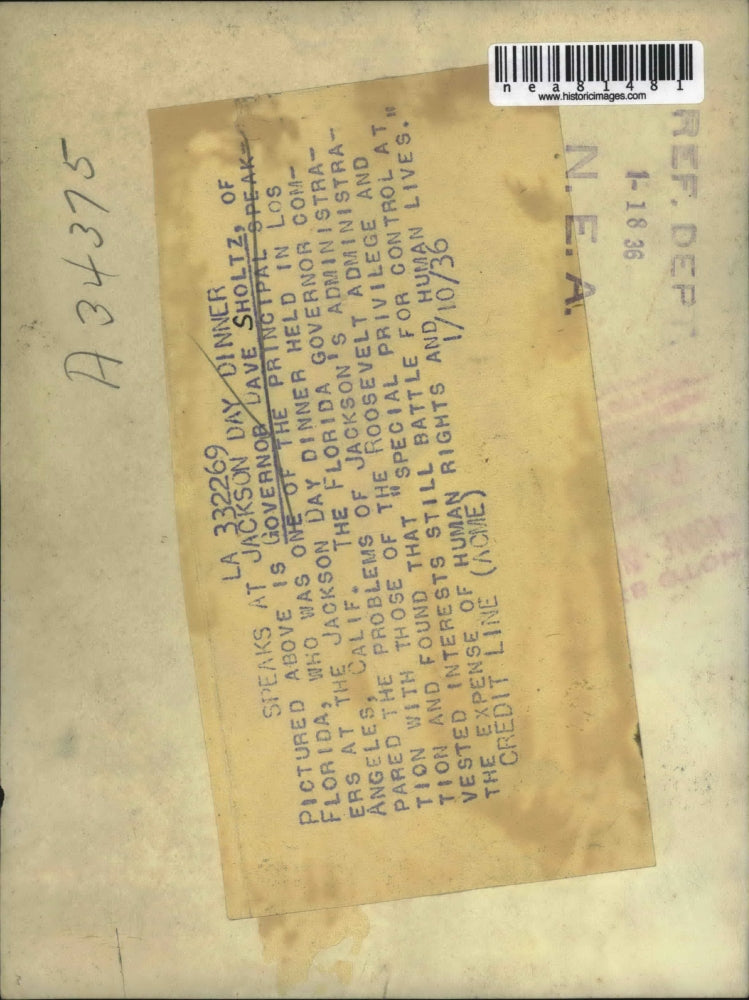 nea81481
www.historicimages.com
REF. DEPT.
1-18 36
N.E.A.
A34375
LA 332269
SPEAKS AT JACKSON DAY DINNER
PICTURED ABOVE IS GOVERNOR DAVE SHOLTZ, OF
FLORIDA, WHO WAS ONE OF THE PRINCIPAL SPEAK-
ERS AT THE JACKSON DAY DINNER HELD IN LOS
ANGELES, CALIF. THE FLORIDA GOVERNOR COM-
PARED THE PROBLEMS OF JACKSON'S ADMINISTRA-
TION WITH THOSE OF THE ROOSEVELT ADMINISTRA-
TION AND FOUND THAT "SPECIAL PRIVILEGE AND
VESTED INTERESTS STILL BATTLE FOR CONTROL AT
THE EXPENSE OF HUMAN RIGHTS AND HUMAN LIVES."
CREDIT LINE (ACME) 1/10/36